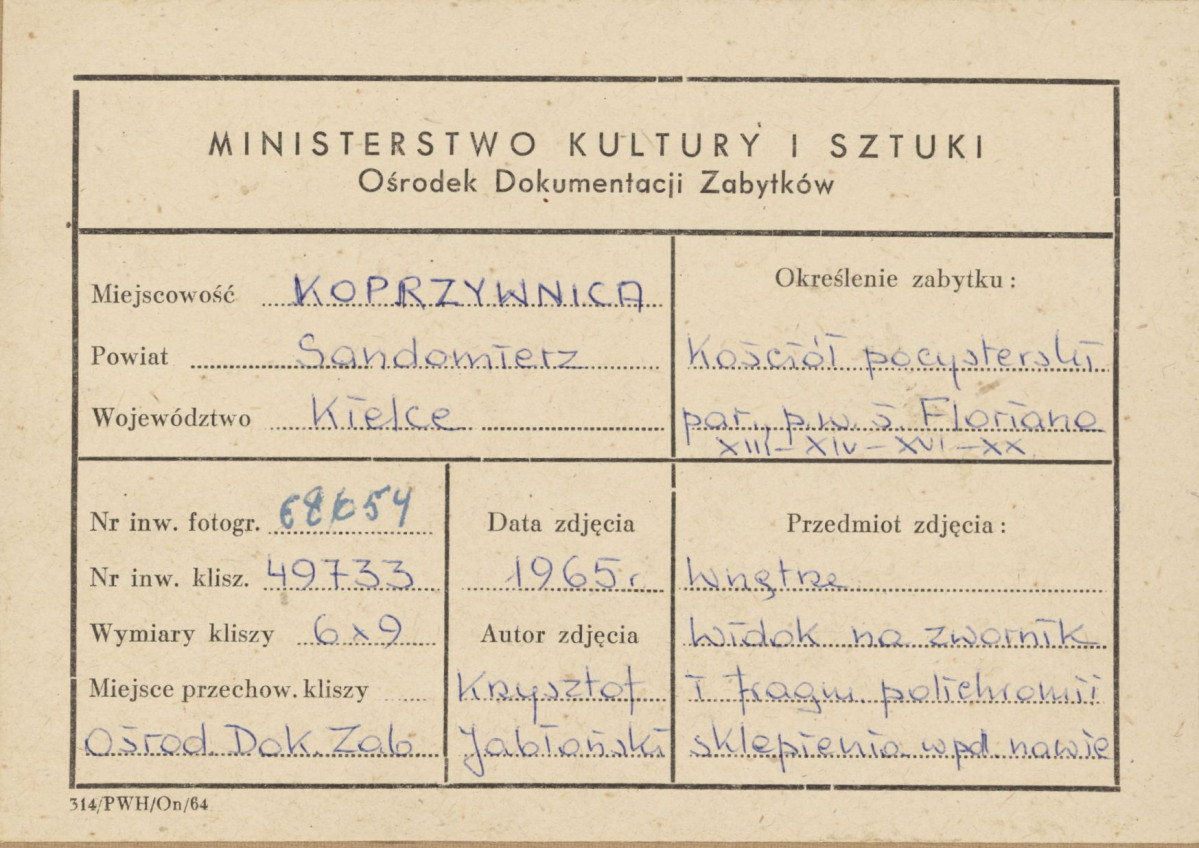 MINISTERSTWO KULTURY I SZTUKI
Ośrodek Dokumentacji Zabytków
Miejscowość KOPRZYWNICA
Powiat Sandomierz
Województwo Kielce
Określenie zabytku:
Kościół pocysterski
par., p.w. ś. Floriana
XIII-XIV-XVI-XX
Nr inw. fotogr.
Nr inw. klisz. 49733
Wymiary kliszy 6x9
Miejsce przechow. kliszy
Ośrod. Dok. Zab
Data zdjęcia
1965 r.
Autor zdjęcia
Krzysztof
Jabłoński
Przedmiot zdjęcia:
Wnętrze
Widok na zwornik
i fragm. polichromii
sklepienia w pd. nawie
314/PWH/On/64